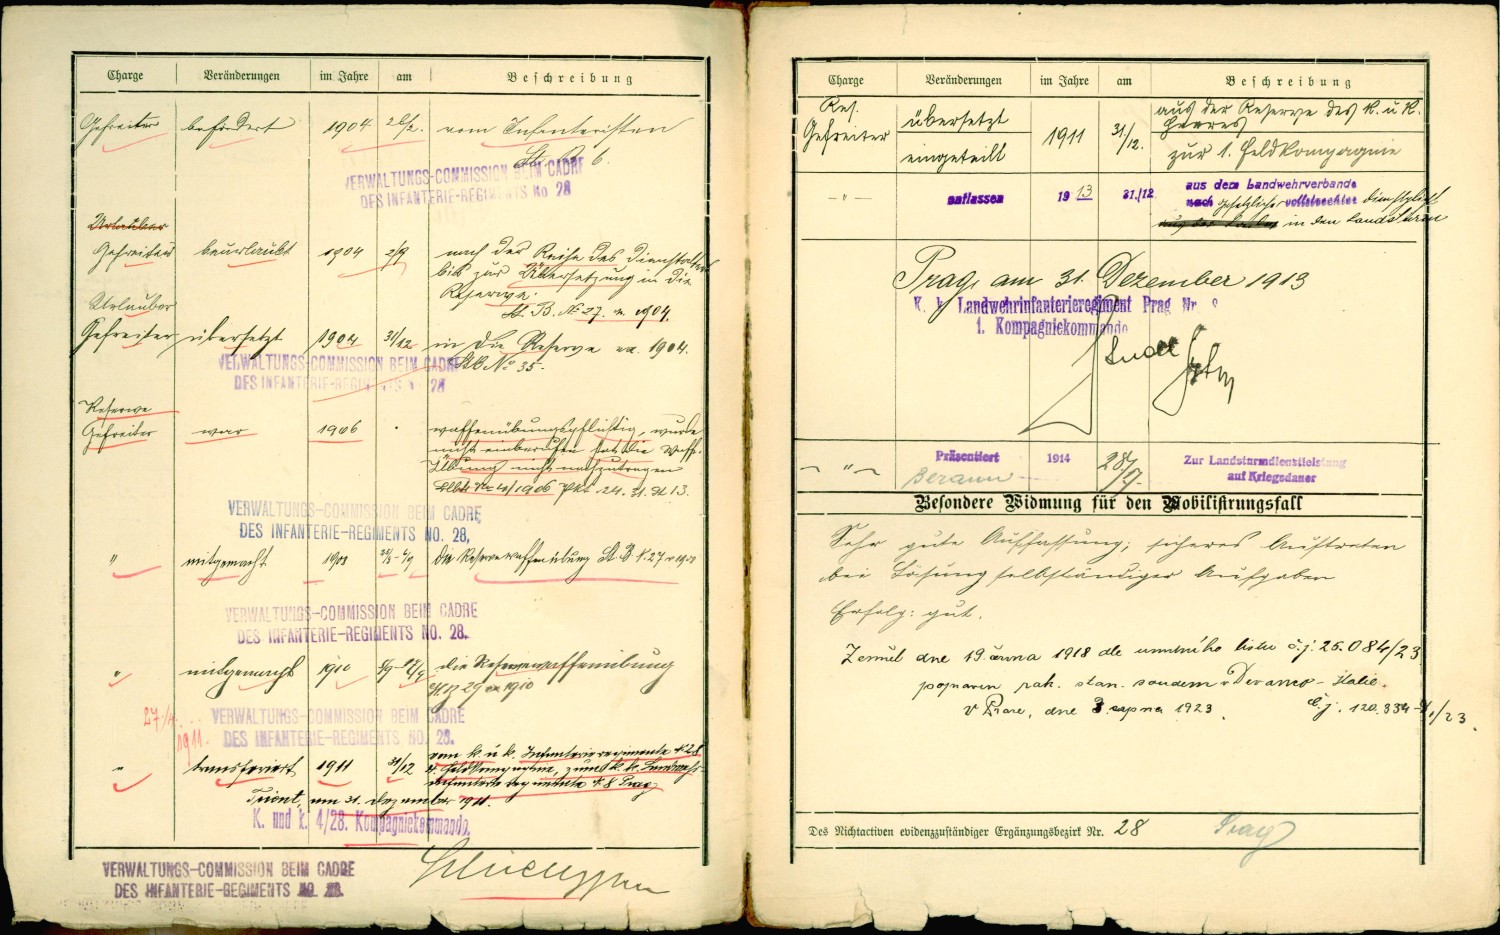 Charge Veränderungen im Jahre am Beschreibung
Gefreiter befördert 1904 26/2. vom Infanteristen
St. B. 6.
VERWALTUNGS-COMMISSION BEIM CADRE
DES INFANTERIE-REGIMENTS No 28
Urlauber
Gefreiter beurlaubt 1904 2/9 nach der Reihe des Dienstalters
bis zur Übersetzung in die
Reserve
St. B. No 27. v. 1904.
Urlauber
Gefreiter übersetzt 1904 31/12 in die Reserve ex. 1904.
StB No 35.
VERWALTUNGS-COMMISSION BEIM CADRE
DES INFANTERIE-REGIMENTS No 28
Reserve
Gefreiter war 1906 waffenübungspflichtig, wurde
nicht einberufen hat die Waff-
Übung nicht nachzutragen
1906 Pkt. 24. 31. St 13.
VERWALTUNGS-COMMISSION BEIM CADRE
DES INFANTERIE-REGIMENTS NO. 28.
" mitgemacht 1908 die Reservewaffenübung St. B. N. 27
VERWALTUNGS-COMMISSION BEIM CADRE
DES INFANTERIE-REGIMENTS NO. 28.
" mitgemacht 1910 die Reservewaffenübung
29 ex 1910
27/4.
1911.
VERWALTUNGS-COMMISSION BEIM CADRE
DES INFANTERIE-REGIMENTS NO. 28.
" transferiert 1911 31/12 vom k. u. k. Infanterieregimente N 28
4. Feldkompagnie, zum k. k. Landwehr-
infanterie Regimente N. 8 Prag
Trient, am 31. Dezember 1911.
K. und k. 4/28. Kompagniekommando.
VERWALTUNGS-COMMISSION BEIM CADRE
DES INFANTERIE-REGIMENTS NO. 28.
Charge Veränderungen im Jahre am Beschreibung
Res. Gefreiter übersetzt 1911 31/12. aus der Reserve des k. u. k.
Heeres
eingeteilt zur 1. Feldkompagnie
-"- entlassen 1913 31./12 aus dem Landwehrverbande
nach gesetzlicher vollstreckter Dienstpflicht
in den Landsturm
Prag, am 31. Dezember 1913
K. k. Landwehrinfanterieregiment Prag Nr. 8
1. Kompagniekommando
-"- Präsentiert 1914 28/7. Zur Landsturmdienstleistung
Beraun auf Kriegsdauer
Besondere Widmung für den Mobilisirungsfall
Sehr gute Auffassung; sicheres Auftreten
bei Lösung selbständiger Aufgaben
Erfolg: gut.
Zemřel dne 19. června 1918 dle úmrtního listu č.j. 25.084/23
popraven rak. stan. soudem v Devanco - Italie.
V Praze, dne 3 srpna 1923. Č.j. 120.334
Des Nichtactiven evidenzzuständiger Ergänzungsbezirk Nr. 28 Prag